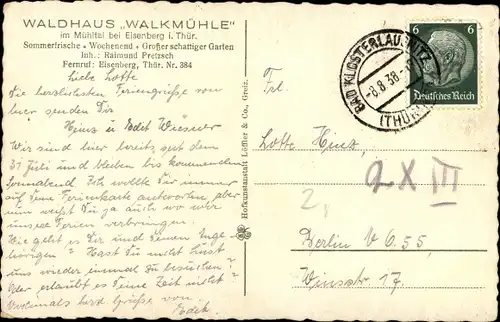 WALDHAUS „WALKMÜHLE"
im Mühltal bei Eisenberg i. Thür.
Sommerfrische • Wochenend • Großer schattiger Garten
Inh.: Raimund Pretzsch
Fernruf: Eisenberg, Thür. Nr. 384
Liebe Lotte
die herzlichsten Feriengrüße von
hier senden Dir
Heinz u Edit
Wir sind hier bereits seit dem
31 Juli und bleiben bis kommenden
Sonnabend. Ich wollte Dir immer
auf Deine Ferienkarte antworten aber
nun weißt Du ja auch wo wir
unsere Ferien verbringen.
Wie geht es Dir und Deinen Ange-
hörigen? Hast Du nicht Lust
uns wieder einmal zu besuchen?
Oder erlaubt es Deine Zeit nicht?
Nochmals herzl Grüße von
Edit
Hofkunstanstalt Löffler & Co., Greiz.
6 6
Deutsches Reich
BAD KLOSTERLAUSNITZ
-8.8.38
(THÜR)
Frl.
Lotte
2 X III
2,
Berlin 55,
Winsstr 17.